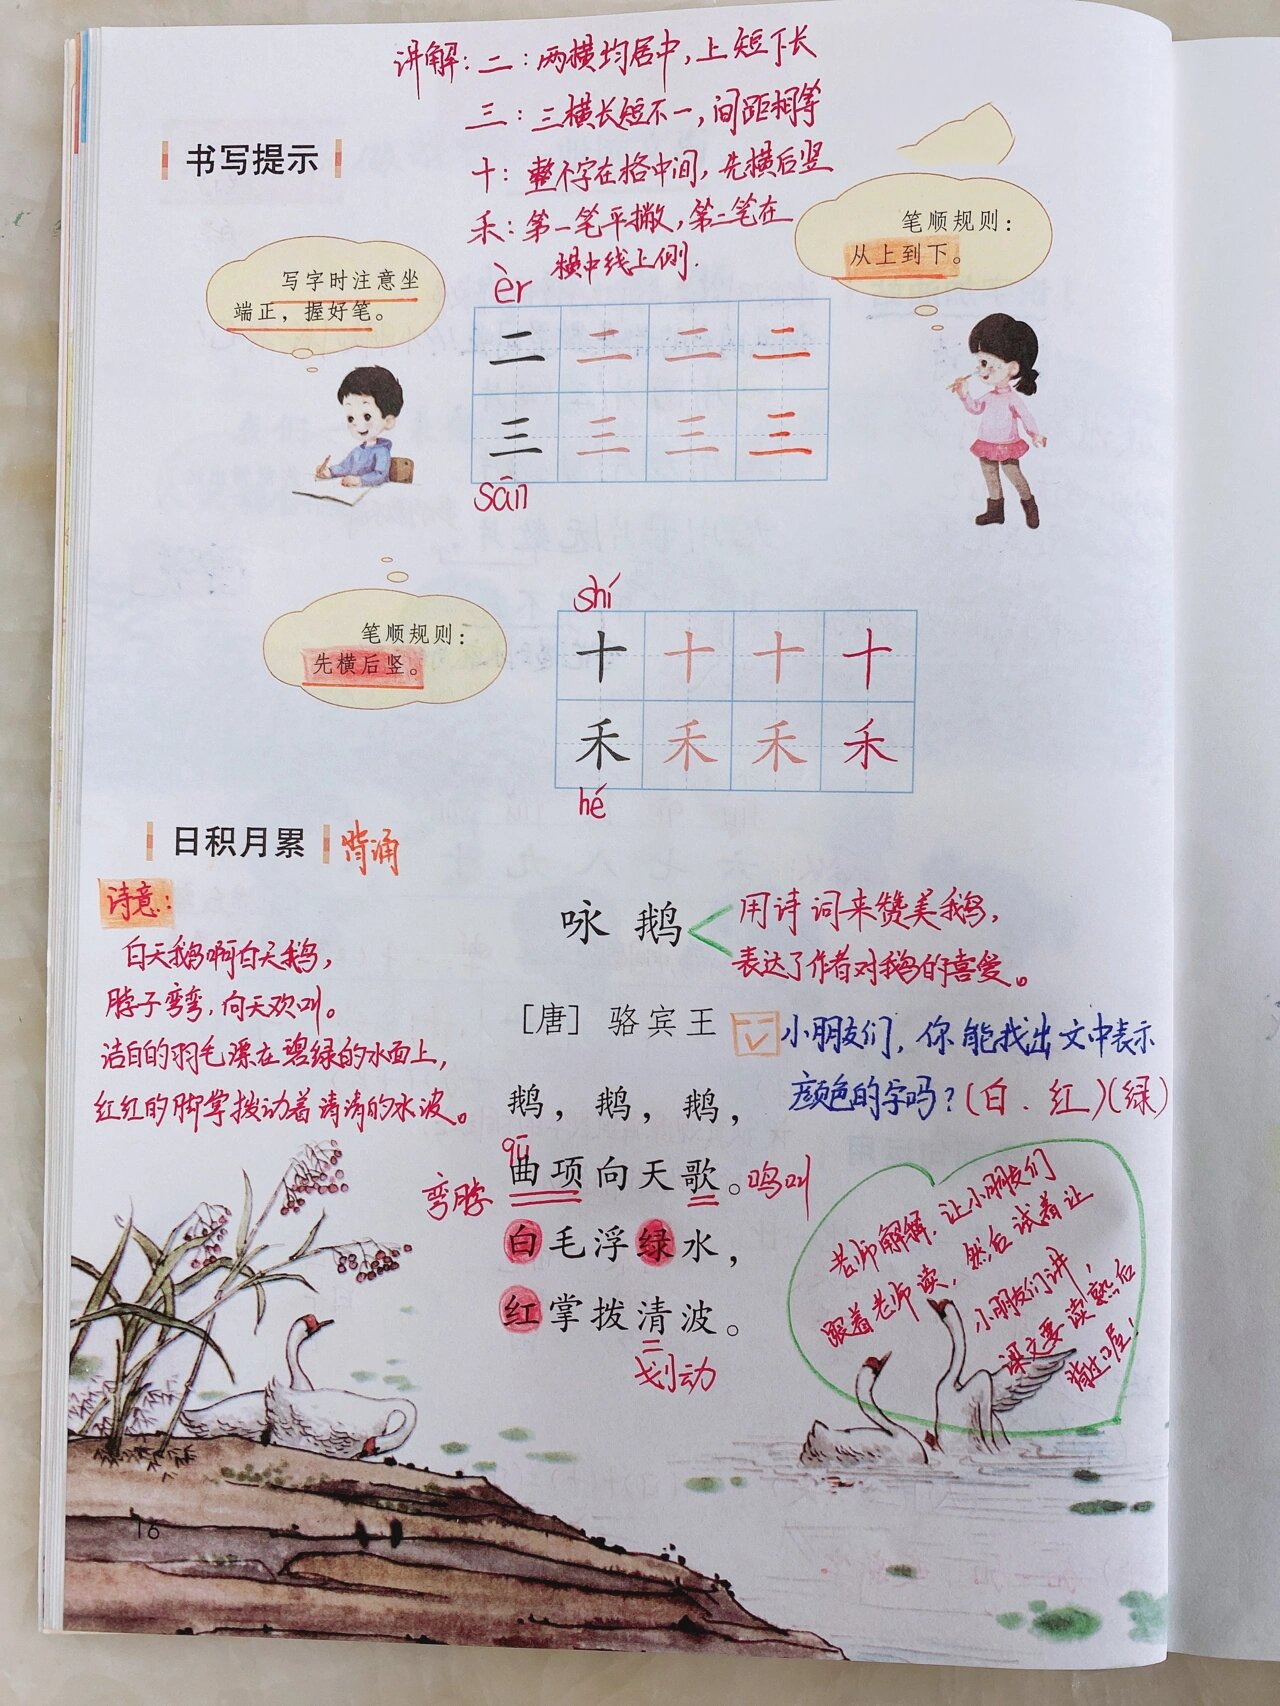 讲解：二：两横均居中，上短下长
三：三横长短不一，间距相等
十：整个字在格中间，先横后竖
禾：第一笔平撇，第二笔在
横中线上侧.
书写提示
写字时注意坐
端正，握好笔。
笔顺规则：
从上到下。
èr
二 二 二 二
三 三 三 三
sān
笔顺规则：
先横后竖。
shí
十 十 十 十
禾 禾 禾 禾
hé
日积月累 背诵
诗意：
白天鹅啊白天鹅，
脖子弯弯，向天欢叫。
洁白的羽毛漂在碧绿的水面上，
红红的脚掌拨动着清清的水波。
咏鹅
用诗词来赞美鹅，
表达了作者对鹅的喜爱。
［唐］骆宾王
小朋友们，你能找出文中表示
颜色的字吗？(白．红)(绿)
鹅，鹅，鹅，
qū
弯脖 曲项向天歌。鸣叫
白毛浮绿水，
红掌拨清波。
划动
老师解释．让小朋友们
跟着老师读，然后试着让
小朋友们讲，
课文要读熟后
背过！
16